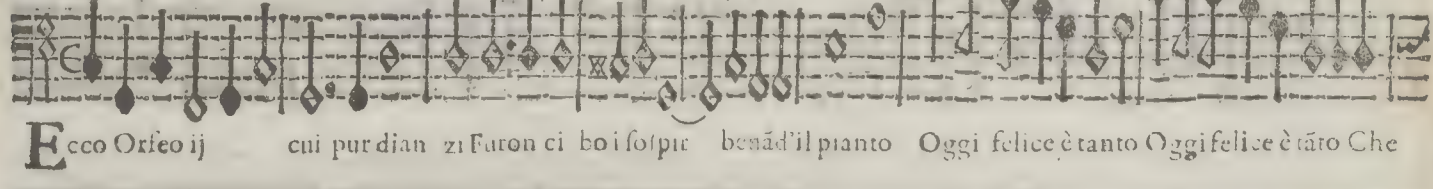 Ecco Orfeo ij cui pur dian zi Furon ci bo i soſpir benãd'il pianto Oggi felice è tanto Oggi felice è tãto Che